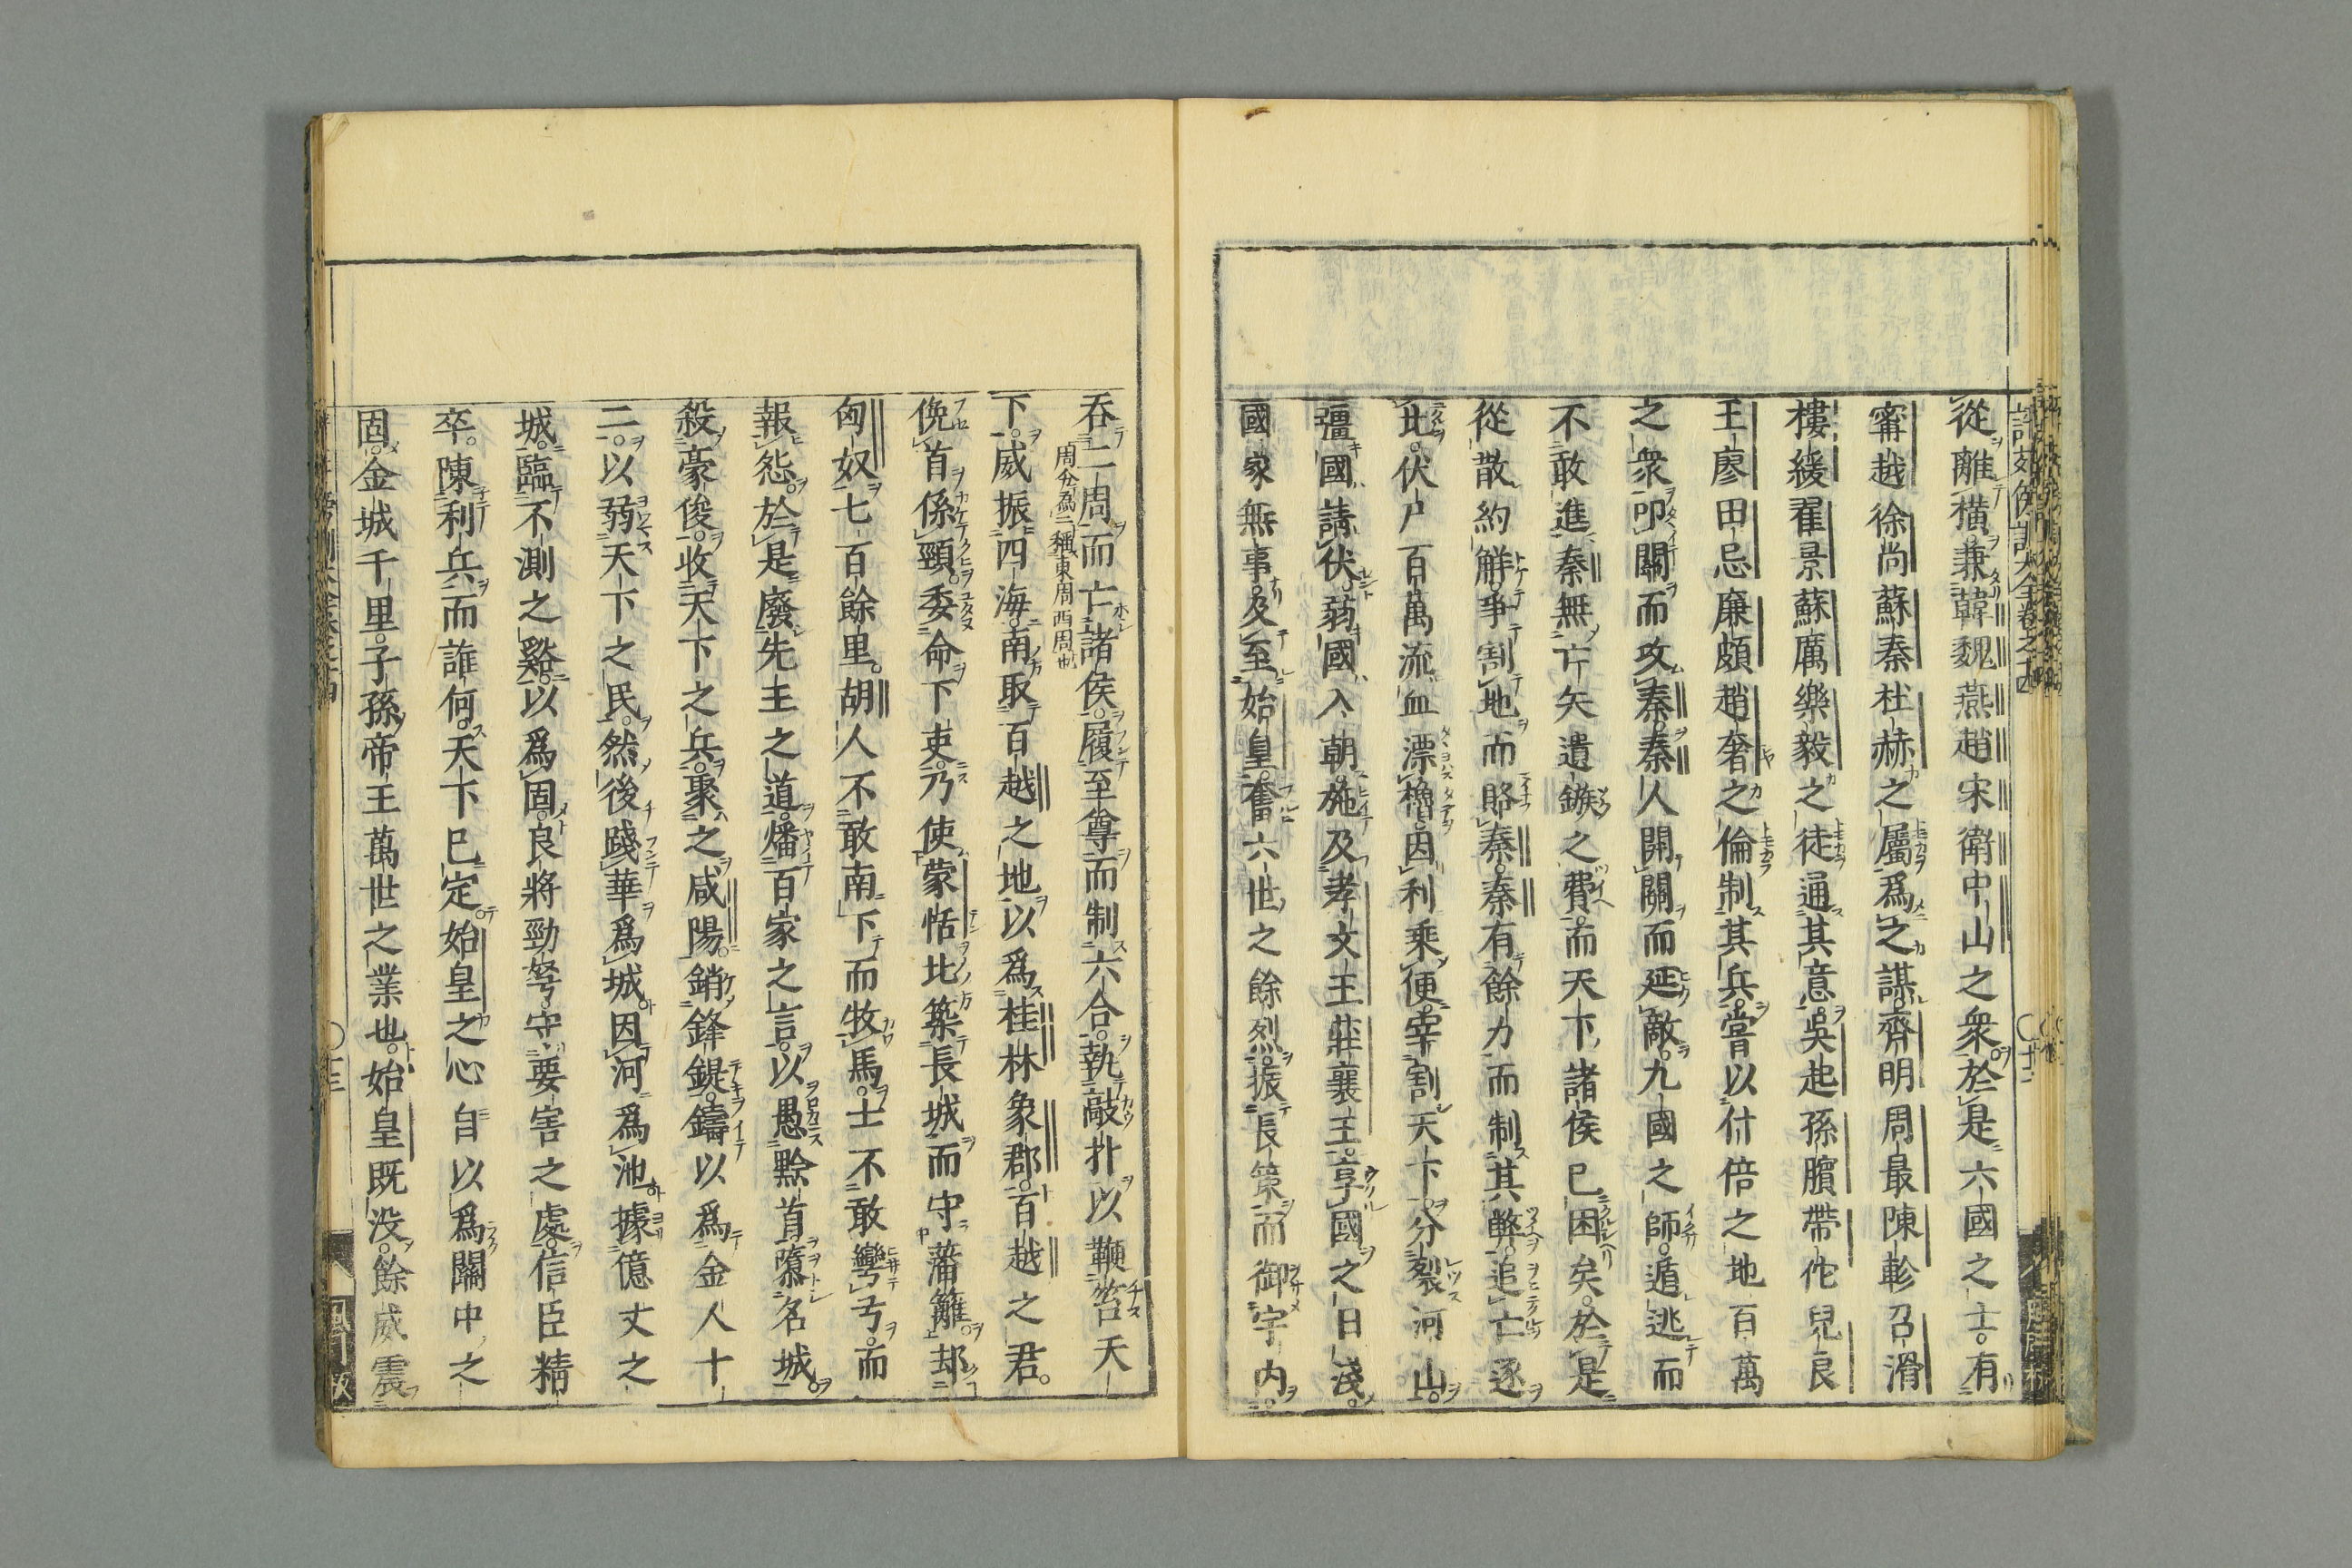 從離橫兼韓魏燕趙宋衛中山之衆於是六國之士有
甯越徐尚蘇秦杜赫之屬爲之謀齊明周最陳軫召滑
樓緩翟景蘇厲樂毅之徒通其意吳起孫臏帶佗兒良
王廖田忌廉頗趙奢之倫制其兵嘗以什倍之地百萬
之衆叩關而攻秦秦人開關而延敵九國之師遁逃而
不敢進秦無亡矢遺鏃之費而天下諸侯已困矣於是
從散約解爭割地而賂秦秦有餘力而制其弊追亡逐
北伏尸百萬流血漂櫓因利乘便宰割天下分裂河山
彊國請伏弱國入朝施及孝文王莊襄王享國之日淺
國家無事及至始皇奮六世之餘烈振長策而御宇內
吞二周而亡諸侯履至尊而制六合執敲扑以鞭笞天
周分爲二稱東周西周也
下威振四海南取百越之地以爲桂林象郡百越之君
俛首係頸委命下吏乃使蒙恬北築長城而守藩籬却
匈奴七百餘里胡人不敢南下而牧馬士不敢彎弓而
報怨於是廢先王之道燔百家之言以愚黔首隳名城
殺豪俊收天下之兵聚之咸陽銷鋒鍉鑄以爲金人十
二以弱天下之民然後踐華爲城因河爲池據億丈之
城臨不測之谿以爲固良將勁弩守要害之處信臣精
卒陳利兵而誰何天下已定始皇之心自以爲關中之
固金城千里子孫帝王萬世之業也始皇既没餘威震